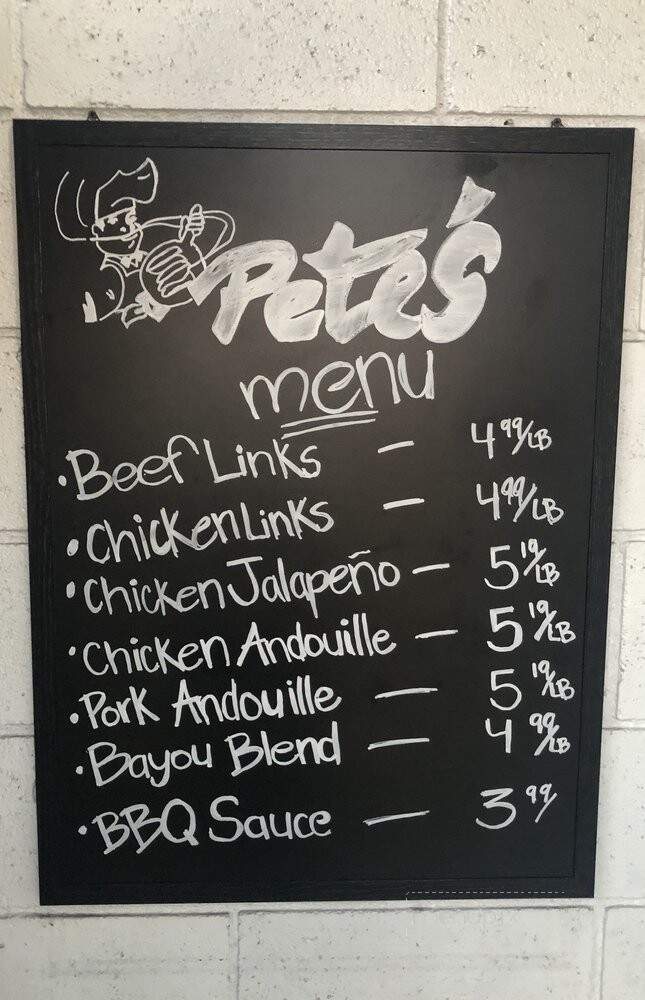 Pete's
menu
• Beef Links — 4 99/LB
• Chicken Links — 4 99/LB
• Chicken Jalapeño — 5 19/LB
• Chicken Andouille — 5 19/LB
• Pork Andouille — 5 19/LB
• Bayou Blend — 4 99/LB
• BBQ Sauce — 3 99/